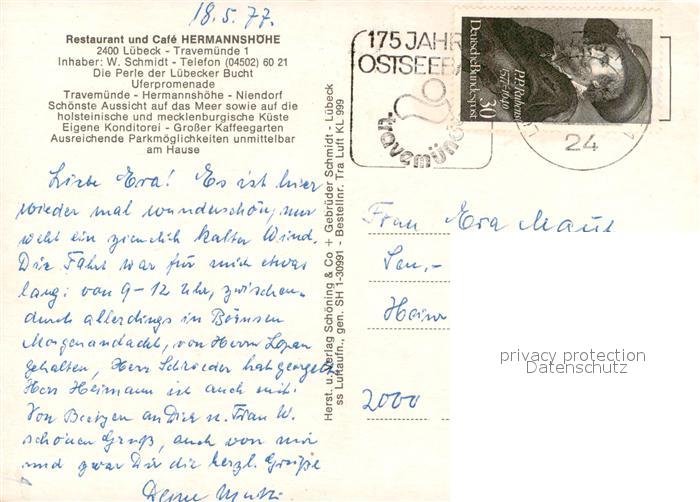 18.5.77.
Restaurant und Café HERMANNSHÖHE
2400 Lübeck - Travemünde 1
Inhaber: W. Schmidt - Telefon (04502) 60 21
Die Perle der Lübecker Bucht
Uferpromenade
Travemünde - Hermannshöhe - Niendorf
Schönste Aussicht auf das Meer sowie auf die
holsteinische und mecklenburgische Küste
Eigene Konditorei - Großer Kaffeegarten
Ausreichende Parkmöglichkeiten unmittelbar
am Hause
Liebe Eva! Es ist hier
wieder mal wunderschön, nur
weht ein ziemlich kalter Wind.
Die Fahrt war für mich etwas
lang: von 9-12 Uhr, zwischen-
durch allerdings in Börnsen
Morgenandacht, von Herrn
gehalten, Herr Schröder hat georgelt
Herr Heimann ist auch mit.
Von an Dich u. Frau W.
schönen Gruß, auch von mir
und zwar Dir die herzl. Grüße
Deine Mutti.
Herst. u. Verlag Schöning & Co + Gebrüder Schmidt - Lübeck
ss Luftaufn., gen. SH 1-30991 - Bestellnr. Tra Luft KL 999
175 JAHR
OSTSEEBA
travemün
Deutsche Bundespost
P.P. Rubens
1577-1640
30
24
1
Frau Eva
Sen.-
Heinr
2000
privacy protection
Datenschutz